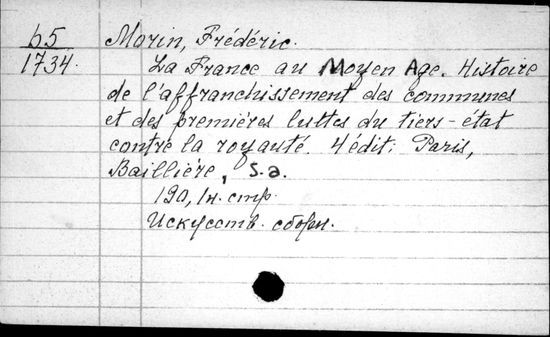 b5
1734.
Morin, Frédéric.
La France au Moyen Age. Histoire
de l'affranchissement des communes
et des premières luttes du tiers-état
contre la royauté. 4 édit. Paris,
Baillière, s.a.
190, 1н. стр.
Искусств. сборн.